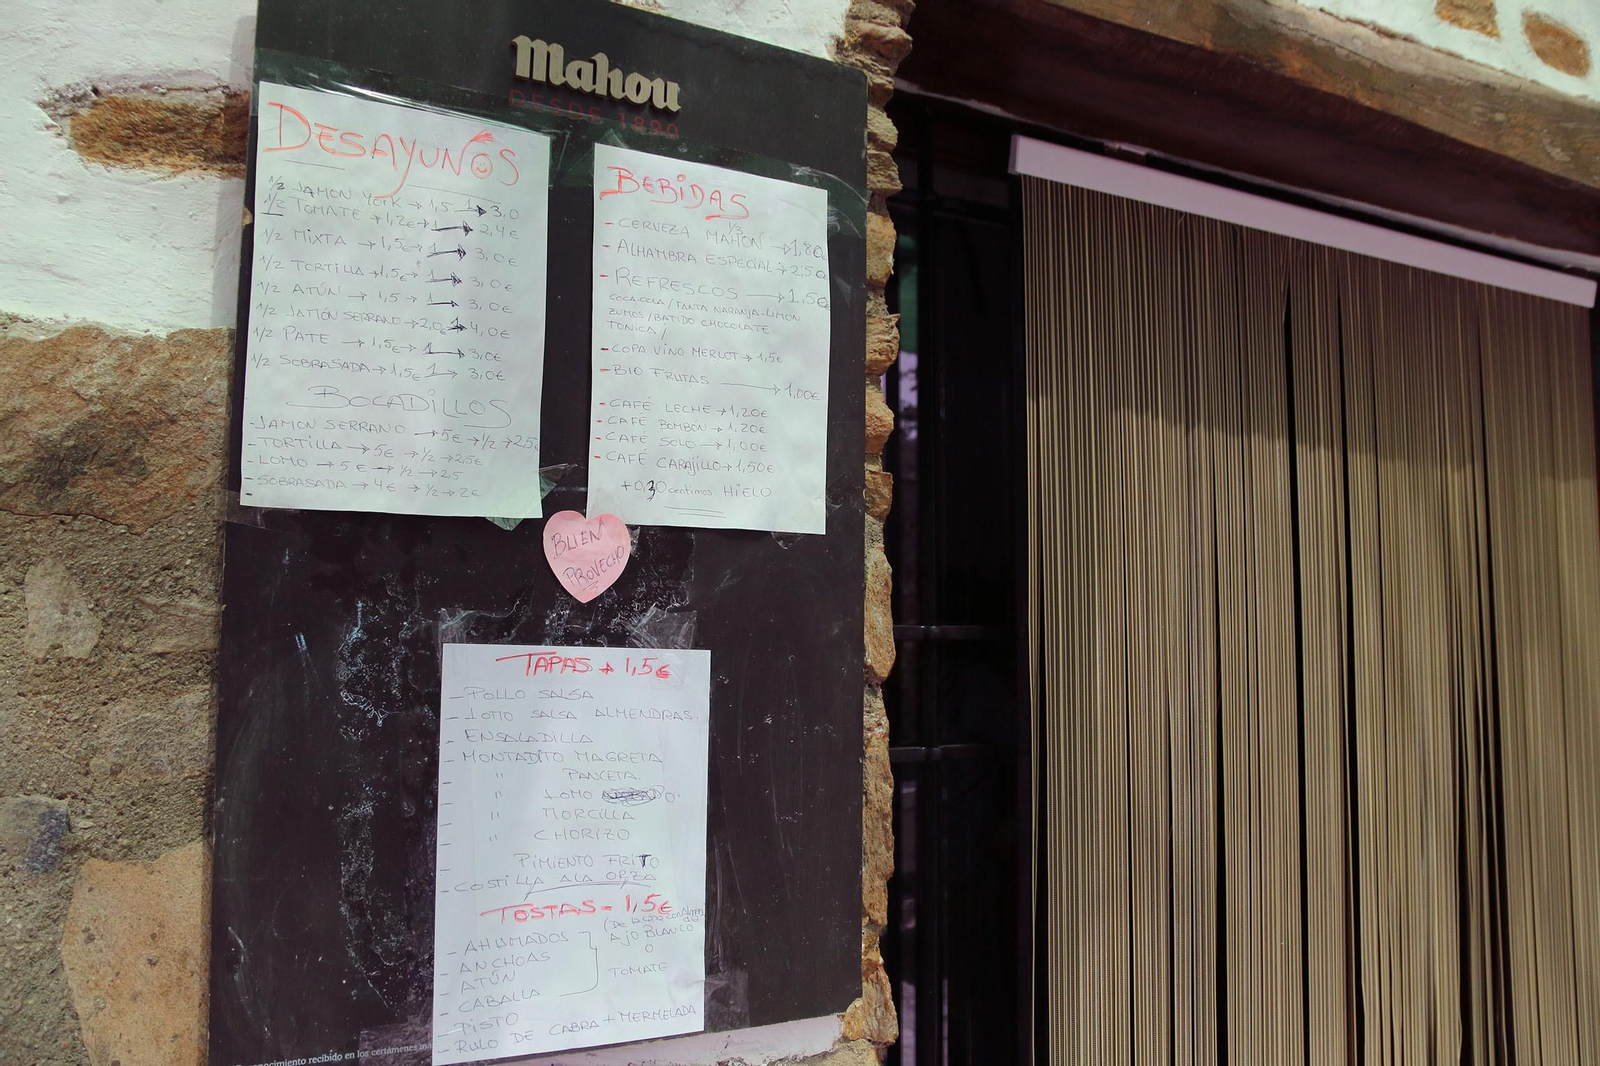 Mahou
DESDE 1890
DESAYUNOS
1/2 JAMON YORK → 1,5 1 → 3,0
1/2 TOMATE → 1,2€ → 1 → 2,4€
1/2 MIXTA → 1,5€ → 1 → 3,0€
1/2 TORTILLA → 1,5€ 1 → 3,0€
1/2 ATÚN → 1,5 → 1 → 3,0€
1/2 JAMÓN SERRANO → 2,0€ 1 → 4,0€
1/2 PATE → 1,5€ → 1 → 3,0€
1/2 SOBRASADA → 1,5€ 1 → 3,0€
BOCADILLOS
- JAMON SERRANO → 5€ → 1/2 → 2,5€
- TORTILLA → 5€ → 1/2 → 2,5€
- LOMO → 5€ → 1/2 → 2,5
- SOBRASADA → 4€ → 1/2 → 2€
-
BEBIDAS
- CERVEZA MAHOU 1/3 → 1,80
- ALHAMBRA ESPECIAL → 2,50
- REFRESCOS → 1,50
COCA-COLA / FANTA NARANJA-LIMON
ZUMOS / BATIDO CHOCOLATE
TONICA /
- COPA VINO MERLOT → 1,5€
- BIO FRUTAS → 1,00€
- CAFÉ LECHE → 1,20€
- CAFÉ BOMBÓN → 1,20€
- CAFÉ SOLO → 1,00€
- CAFÉ CARAJILLO → 1,50€
+0,30 centimos HIELO
BUEN
PROVECHO
TAPAS → 1,5€
- POLLO SALSA
- LOMO SALSA ALMENDRAS.
- ENSALADILLA
- MONTADITO MAGRETA
- " PANCETA.
- " LOMO
- " MORCILLA
- " CHORIZO
- PIMIENTO FRITO
- COSTILLA A LA ORZA
TOSTAS - 1,5€
- AHUMADOS
AJO BLANCO
- ANCHOAS
O
- ATÚN
TOMATE
- CABALLA
- PISTO
- RULO DE CABRA + MERMELADA
onocimiento recibido en los certámenes